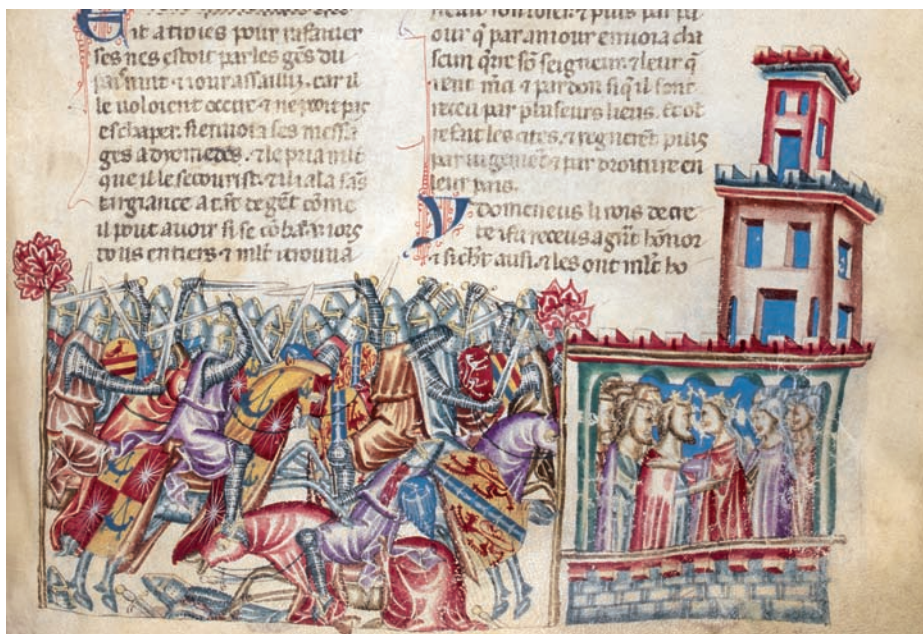 pour
ses nes estoit par les gẽs du
nuit ⁊ iour assailliz. car il
le uoloient occire ⁊ ne poit pas
eschaper. si enuoia ses messa
ges a dyomedes. ⁊ le pria mlt
que il le secourist. ⁊ il i ala sãs
targiance a tãt de gẽt cõme
il pout auoir si se cõbati .v. iors
tous entiers ⁊ mlt i trouua
⁊ puis par
our q̃ par amour enuoia cha
scun q̃rre sõ seigneur. ⁊ leur q̃
rent m̃ci ⁊ pardon si q̃ il sont
receu par plusieurs lieus. Et ot
refait les cites. ⁊ regnerẽt puis
par iugemẽt ⁊ par droiture en
leur païs.
Ydomeneus li rois de cre
te ifu receus a grãt hõnor
⁊ si ausi. ⁊ les ont mlt ho